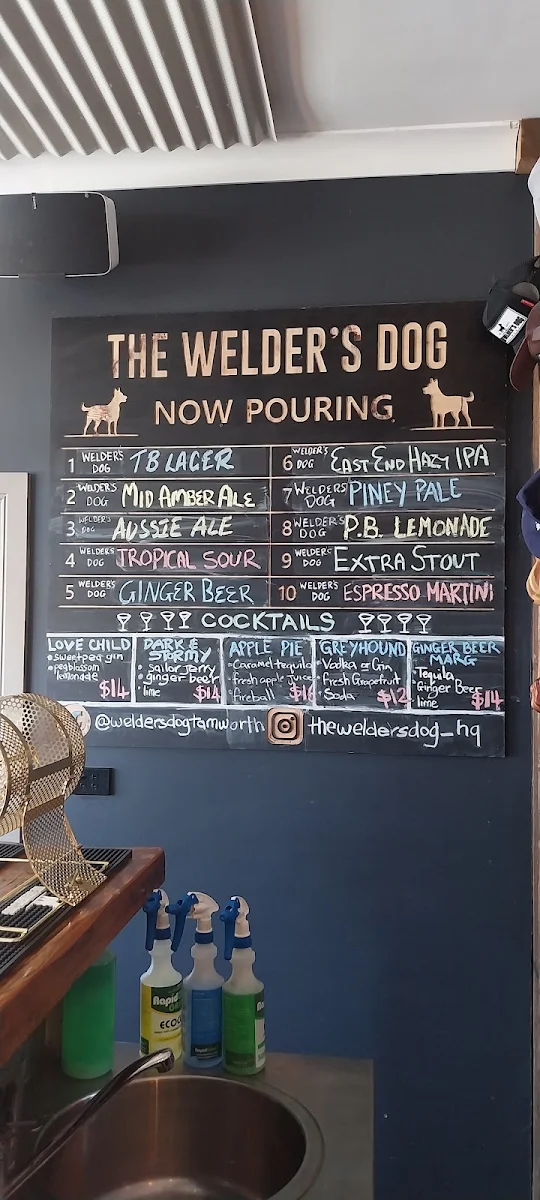 THE WELDER'S DOG
NOW POURING
1 WELDER'S DOG TB LAGER
2 WELDER'S DOG MID AMBER ALE
3 WELDER'S DOG AUSSIE ALE
4 WELDER'S DOG TROPICAL SOUR
5 WELDER'S DOG GINGER BEER
6 WELDER'S DOG EAST END HAZY IPA
7 WELDER'S DOG PINEY PALE
8 WELDER'S DOG P.B. LEMONADE
9 WELDER'S DOG EXTRA STOUT
10 WELDER'S DOG ESPRESSO MARTINI
COCKTAILS
LOVE CHILD
• sweetpea gin
• peablossom
lemonade
$14
DARK & STORMY
• sailor jerry
• ginger beer
• lime
$14
APPLE PIE
• Caramel tequila
• fresh apple juice
• fireball
$16
GREYHOUND
• Vodka or Gin
• Fresh Grapefruit
• Soda
$12
GINGER BEER
MARG
• Tequila
• Ginger Beer
• lime
$14
@weldersdogtamworth theweldersdog_hq
Rapid
ECO